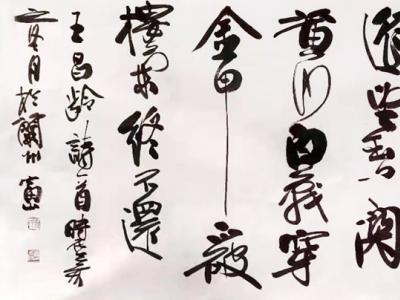 遙望玉門關
黃沙百戰穿
金甲不破
樓蘭終不還
王昌齡詩一首時
冬月於蘭州